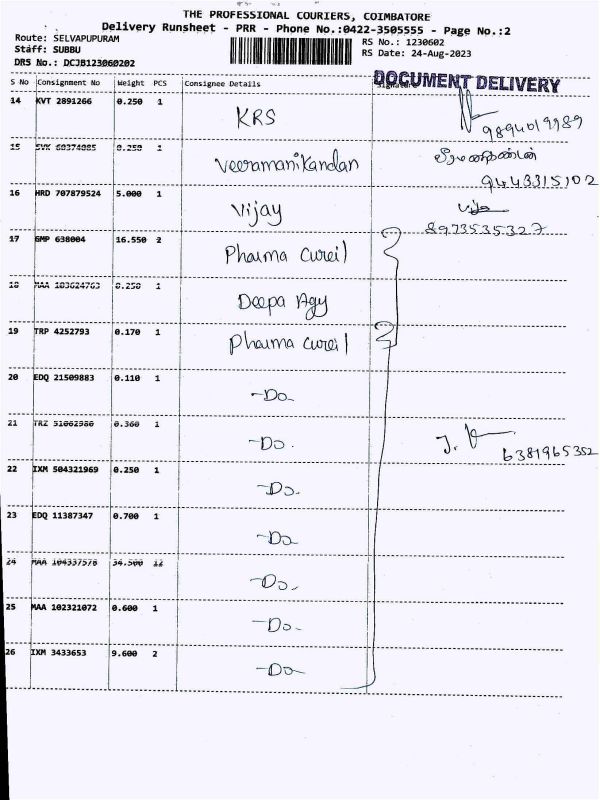 THE PROFESSIONAL COURIERS, COIMBATORE
Delivery Runsheet - PRR - Phone No.:0422-3505555 - Page No.:2
Route: SELVAPUPURAM
RS No.: 1230602
Staff: SUBBU
RS Date: 24-Aug-2023
DRS No.: DCJB123060202
DOCUMENT DELIVERY
S No Consignment No Weight PCS Consignee Details
14 KVT 2891266 0.250 1 KRS
9894019989
15 0.250 1 Veeramanikandan வீரமணிகண்டன்
9443315102
16 HRD 707879524 5.000 1 Vijay
8973535327
17 GMP 638004 16.550 2 Pharma Cureil
18 MAA 103624763 0.250 1 Deepa Agy
19 TRP 4252793 0.170 1 Pharma Cureil
20 EDQ 21509883 0.110 1 -Do-
21 TRZ 51062980 0.360 1 -Do.
6381965352
22 IXM 504321969 0.250 1 -Do.
23 EDQ 11387347 0.700 1 -Do
24 MAA 104337578 34.500 12 -Do.
25 MAA 102321072 0.600 1 -Do-
26 IXM 3433653 9.600 2 -Do-